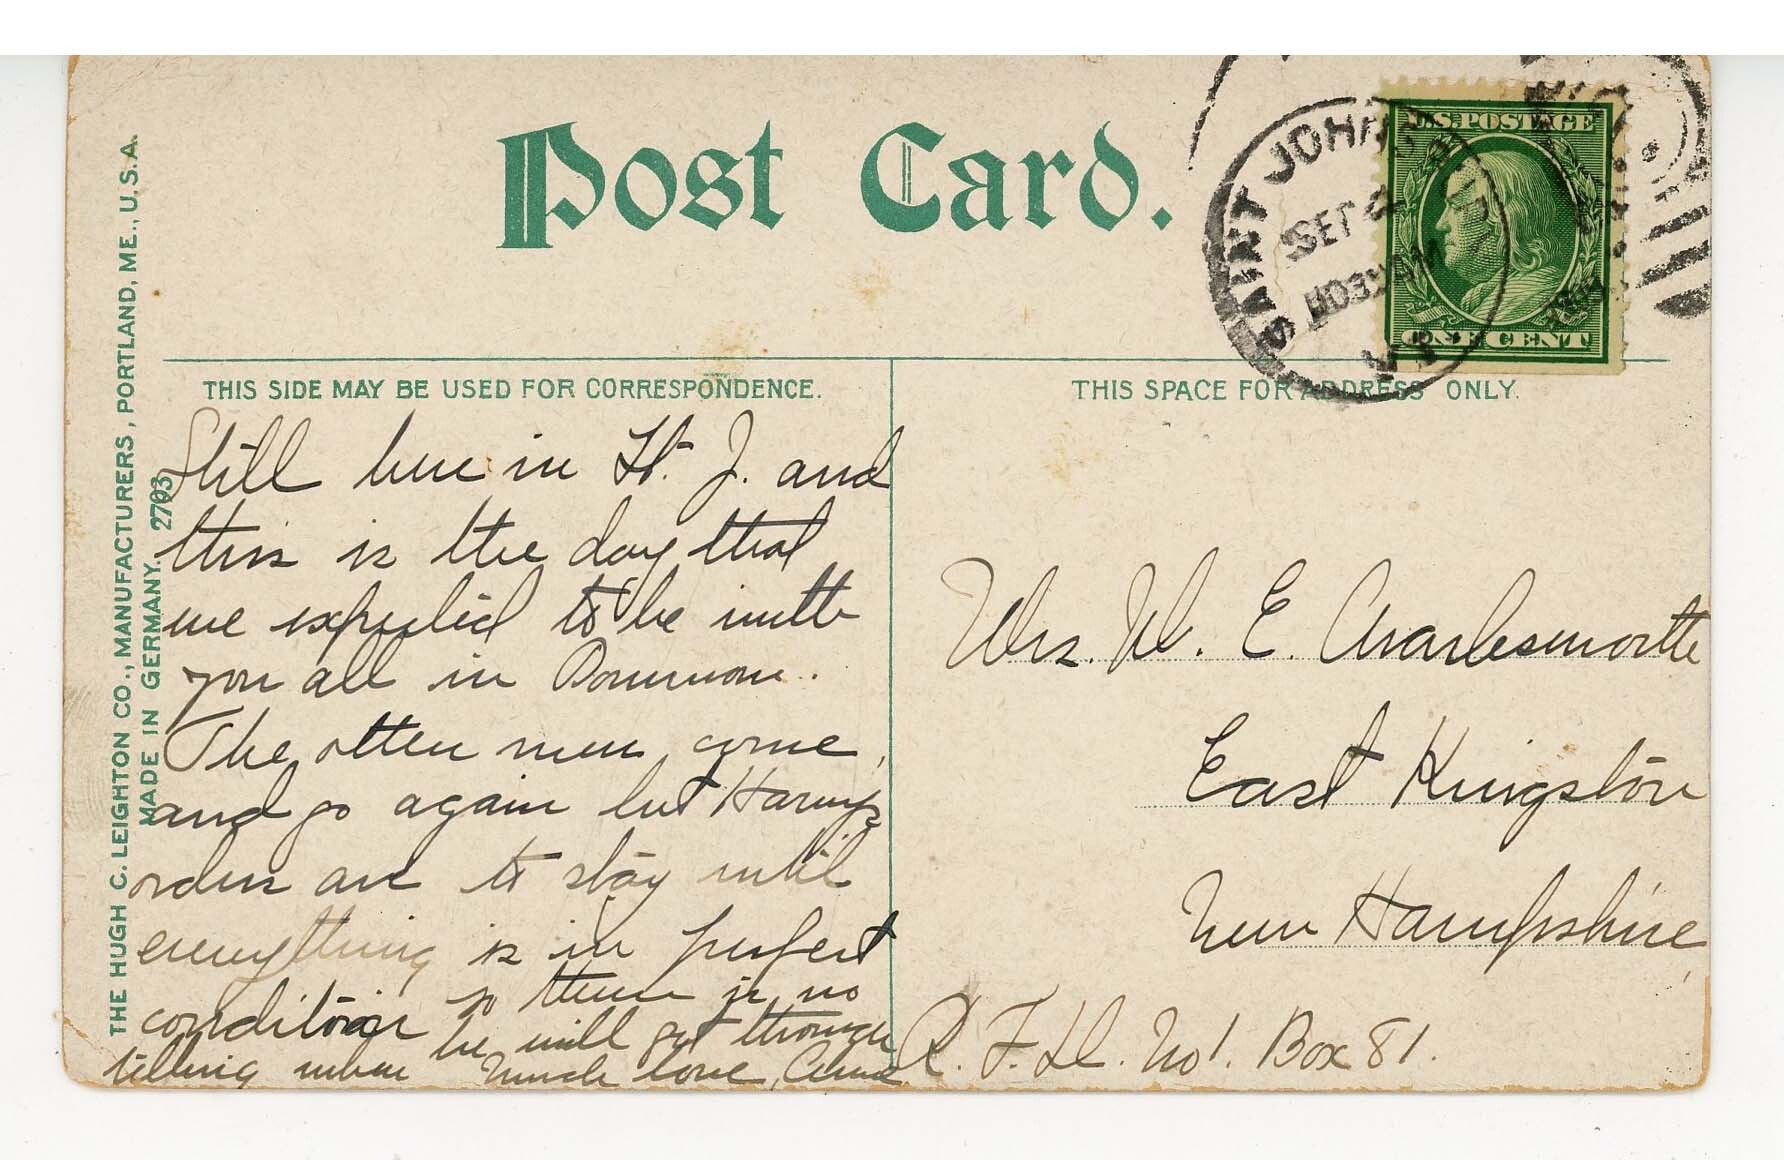 Post Card.
SAINT JOHNSBURY
SET
1030 AM
VT.
U.S. POSTAGE
ONE CENT
THE HUGH C. LEIGHTON CO., MANUFACTURERS, PORTLAND, ME., U.S.A.
MADE IN GERMANY. 2793
THIS SIDE MAY BE USED FOR CORRESPONDENCE.
THIS SPACE FOR ADDRESS ONLY.
Still here in St. J. and
this is the day that
we expected to be with
you all in
The other men come
and go again but Harry's
orders are to stay until
everything is in perfect
condition so there is no
telling when he will get through
Much love,
Mrs. W. E. Charlesworth
East Kingston
New Hampshire
R. F. D. No 1. Box 81.